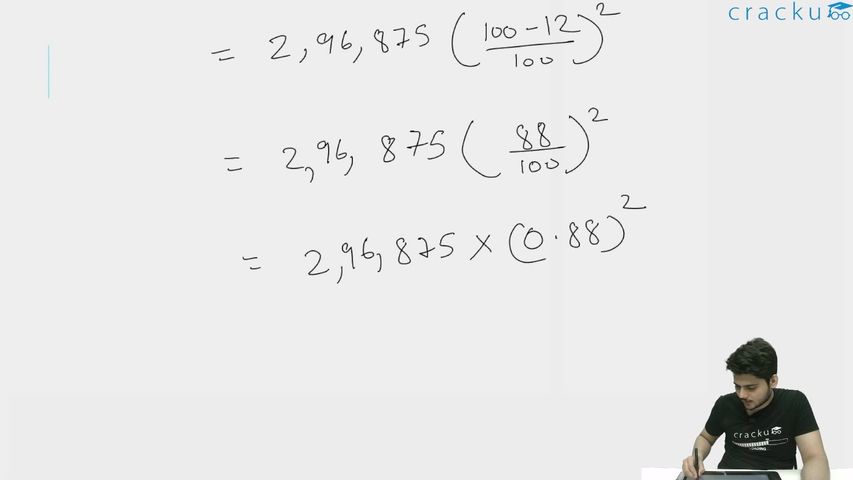 cracku
= 2,96,875 (100-12/100)^2
= 2,96,875 (88/100)^2
= 2,96,875 × (0.88)^2
cracku
LOADING